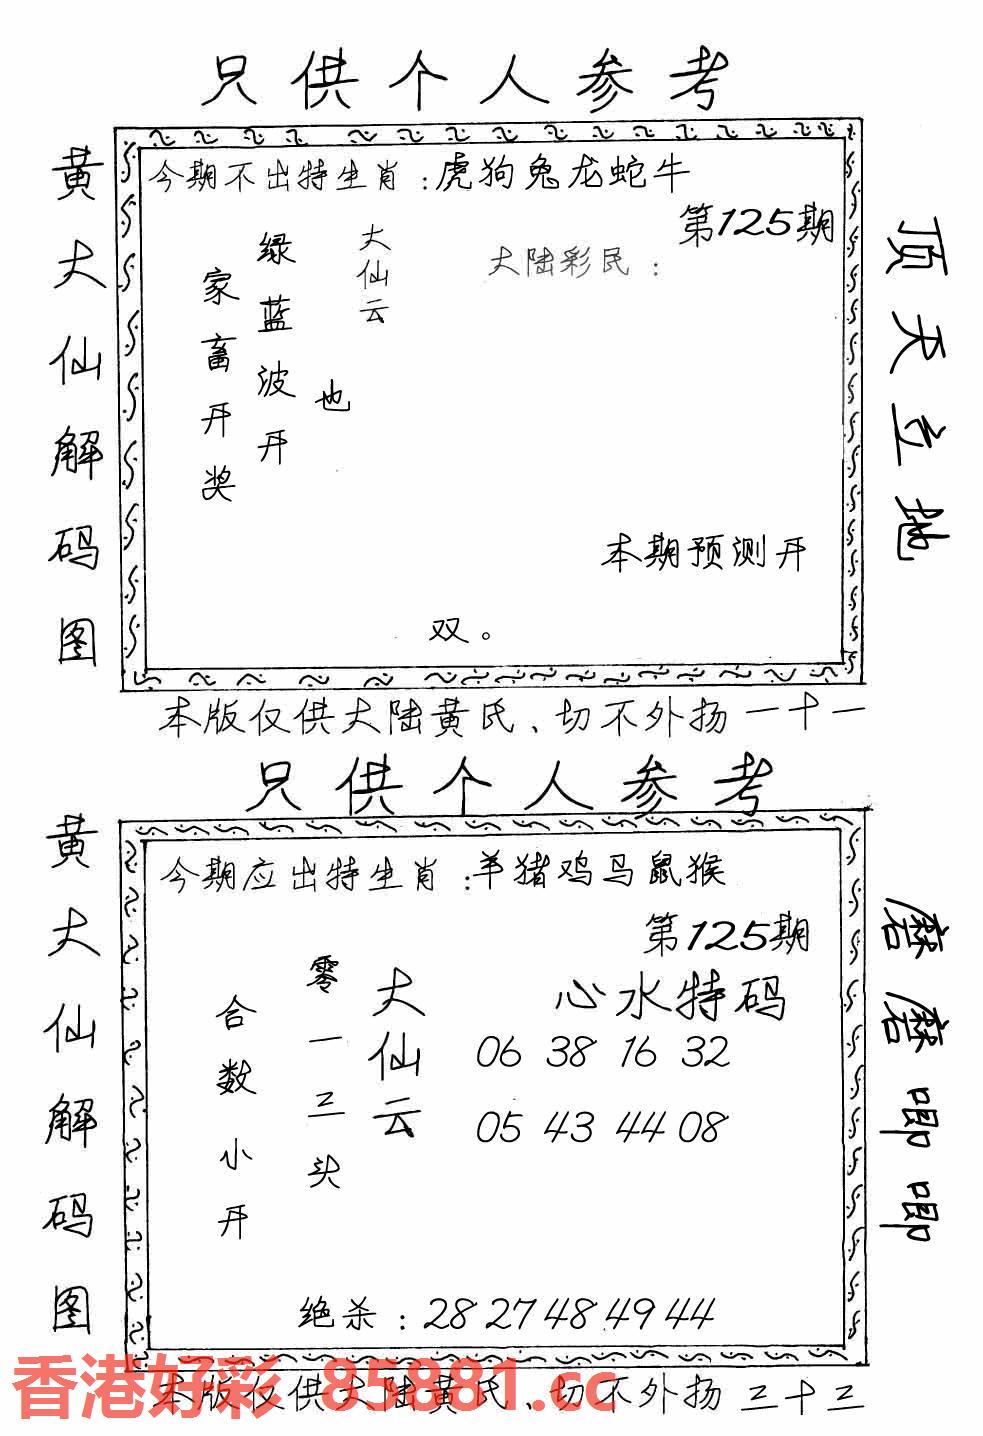 只供个人参考
黄大仙解码图
今期不出特生肖:虎狗兔龙蛇牛
第125期
大陆彩民:
大仙云
也
绿蓝波开
家畜开奖
本期预测开
双。
顶天立地
本版仅供大陆黄氏、切不外扬一十一
只供个人参考
黄大仙解码图
今期应出特生肖:羊猪鸡马鼠猴
第125期
心水特码
06 38 16 32
05 43 44 08
大仙云
零一三头
合数小开
绝杀:28 27 48 49 44
磨磨唧唧
本版仅供大陆黄氏、切不外扬三十三
香港好彩 85881.cc